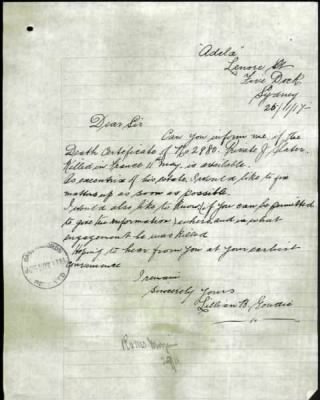 "Adela"
Lenore St
Five Dock
Sydney
26/11/17
Dear Sir
Can you inform me, if the
Death Certificate of No 2980. Private J Slater
Killed in France 11 May, is available.
As executrix of his estate, I would like to fix
matters up as soon as possible.
I would also like to know, if you can be permitted
to give the information, where and in what
engagement he was killed
Hoping to hear from you at your earliest
convenience
I remain
Sincerely Yours
Lillian B. Goudie